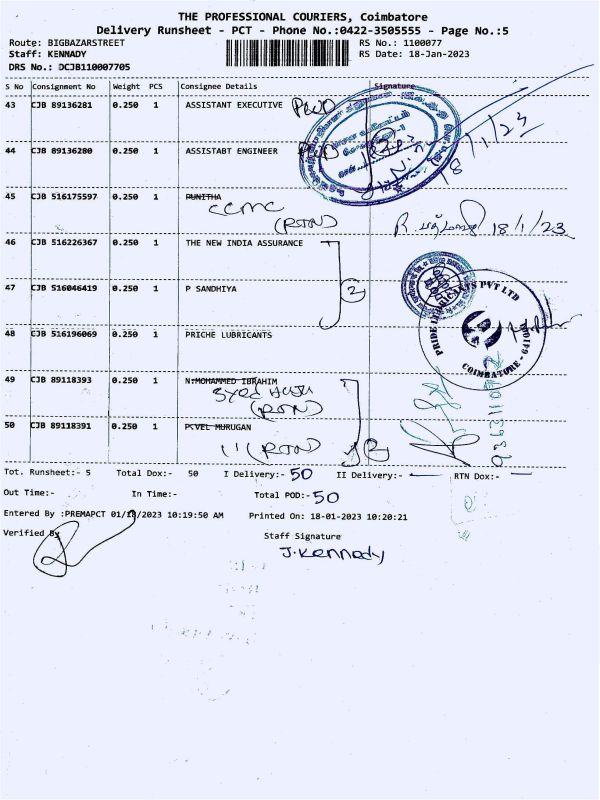 THE PROFESSIONAL COURIERS, Coimbatore
Delivery Runsheet - PCT - Phone No.:0422-3505555 - Page No.:5
Route: BIGBAZARSTREET
RS No.: 1100077
Staff: KENNADY
RS Date: 18-Jan-2023
DRS No.: DCJB110007705
S No Consignment No Weight PCS Consignee Details Signature
43 CJB 89136281 0.250 1 ASSISTANT EXECUTIVE PWD
44 CJB 89136280 0.250 1 ASSISTABT ENGINEER PWD
18/1/23
45 CJB 516175597 0.250 1 PUNITHA
CCMC
(RTN)
R. 18/1/23
46 CJB 516226367 0.250 1 THE NEW INDIA ASSURANCE
47 CJB 516046419 0.250 1 P SANDHIYA
2
48 CJB 516196069 0.250 1 PRICHE LUBRICANTS
PRIDE LUBRICANTS PVT LTD
COIMBATURE - 641001
49 CJB 89118393 0.250 1 N.MOHAMMED IBRAHIM
Syed
(RTN)
50 CJB 89118391 0.250 1 P.VEL MURUGAN
11 (RTN)
Tot. Runsheet:- 5 Total Dox:- 50 I Delivery:- 50 II Delivery:- — RTN Dox:- —
Out Time:- In Time:- Total POD:- 50
Entered By :PREMAPCT 01/18/2023 10:19:50 AM Printed On: 18-01-2023 10:20:21
Verified By Staff Signature
J. Kennady